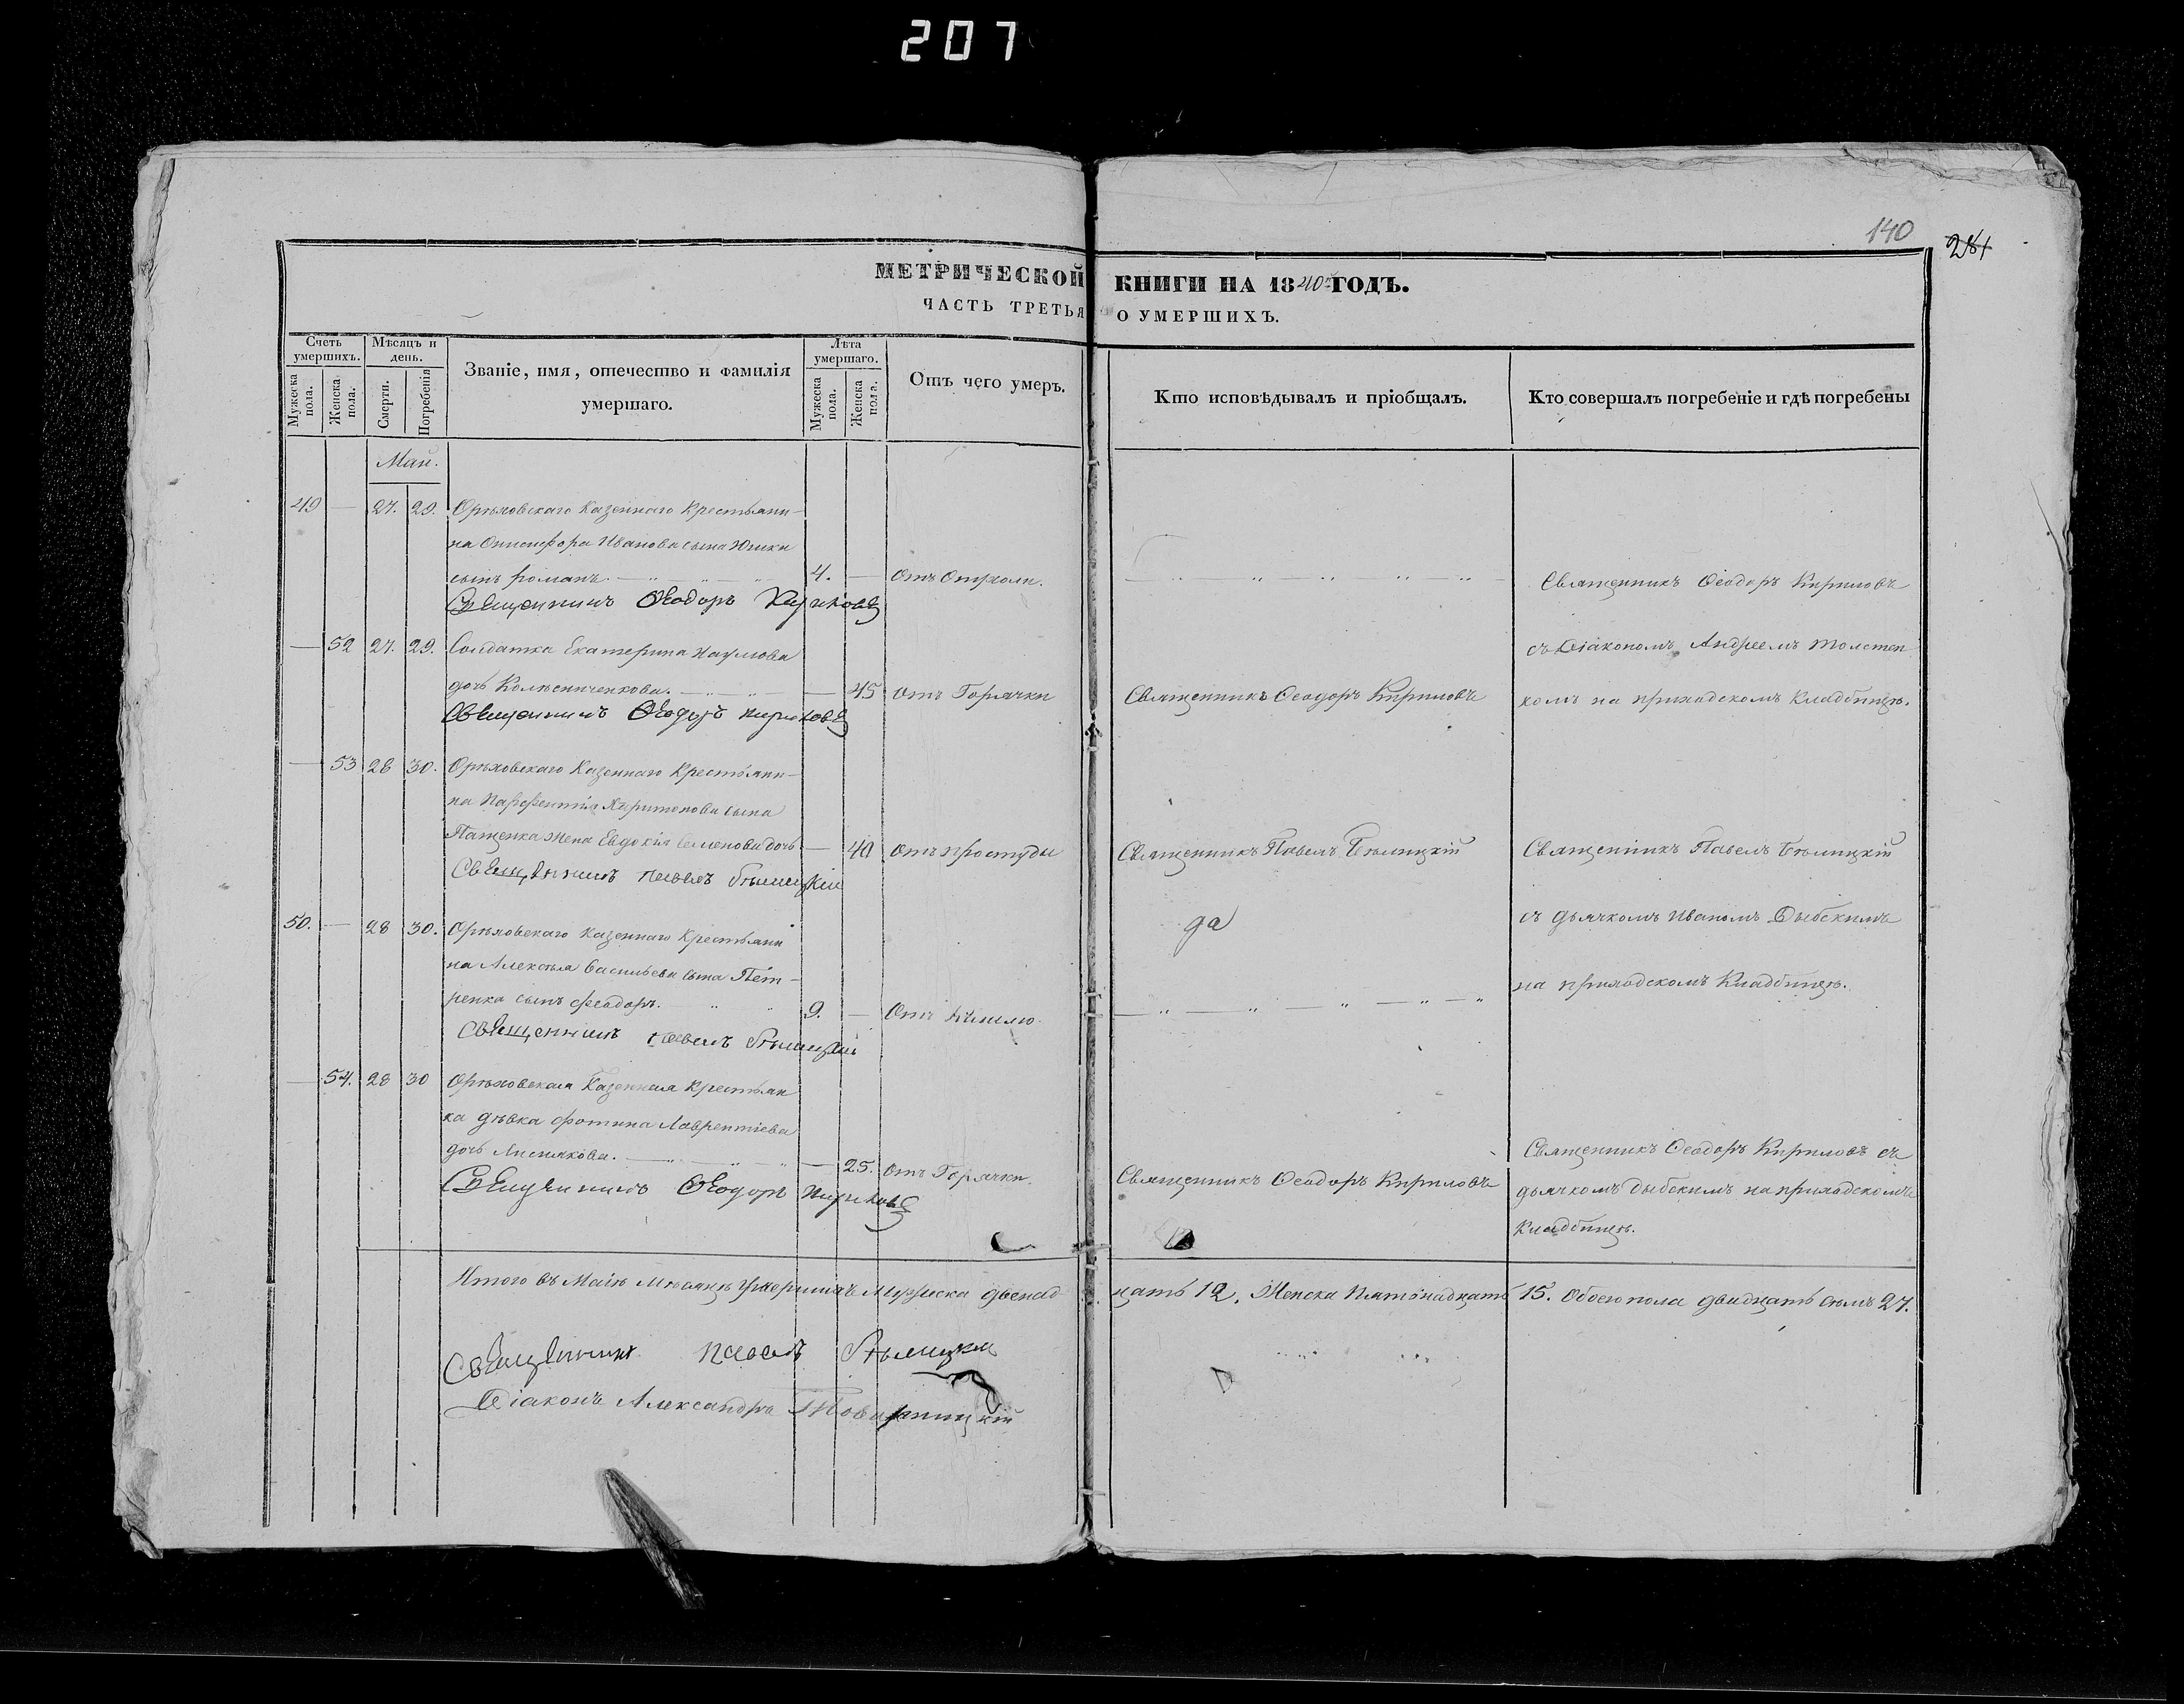 207
140
281
МЕТРИЧЕСКОЙ КНИГИ НА 1840й ГОДЪ.
ЧАСТЬ ТРЕТЬЯ О УМЕРШИХЪ.
Счетъ умершихъ.
Мужеска пола.
Женска пола.
Мѣсяцъ и день.
Смерти.
Погребенія
Званіе, имя, отечество и фамилія умершаго.
Лѣта умершаго.
Мужеска пола.
Женска пола.
Отъ чего умеръ.
Кто исповѣдывалъ и пріобщалъ.
Кто совершалъ погребеніе и гдѣ погребены
Май.
49 — 27. 29. Орѣховскаго Казеннаго Крестьяни-
на Онисифора Иванова сына Юшки
сынъ Романъ. 4. —
Священникъ Ѳеодоръ Кириловъ
Священникъ Ѳеодоръ Кириловъ
съ Діакономъ Андреемъ Толстен
комъ на приходскомъ Кладбищѣ.
— 52 27. 29. Солдатка Екатерина Наумова
дочь Колѣсниченкова. — 45 Отъ Горячки
Священникъ Ѳеодоръ Кириловъ
Священникъ Ѳеодоръ Кириловъ
— 53 28 30. Орѣховскаго Казеннаго Крестьяни-
на Парфентія Харитонова сына
Пащенка жена Евдокія Семенова дочь — 40 Отъ простуды
Священникъ Павелъ Бѣлицкій
Священникъ Павелъ Бѣлицкій
Священникъ Павелъ Бѣлицкій
съ дьячкомъ Иваномъ Дыбскимъ
на приходскомъ Кладбищѣ.
50. — 28 30. Орѣховскаго Казеннаго Крестьяни
на Алексѣя Васильева сына Пет-
ренка сынъ Феодоръ. 9. — Отъ
Священникъ Павелъ Бѣлицкій
да
— 54. 28 30 Орѣховская Казенная Крестьян
ка дѣвка Фотина Лаврентіева
дочь — 25. Отъ Горячки.
Священникъ Ѳеодоръ Кириловъ
Священникъ Ѳеодоръ Кириловъ
Священникъ Ѳеодоръ Кириловъ съ
дьячкомъ Дыбскимъ на приходскомъ
Кладбищѣ.
Итого въ Маіѣ Мѣсяцѣ умершихъ Мужеска двенад цать 12. Женска Пятьнадцать 15. Обоего пола двидцать сѣмъ 27.
Священникъ Павелъ Бѣлицкій
Діаконъ Александръ